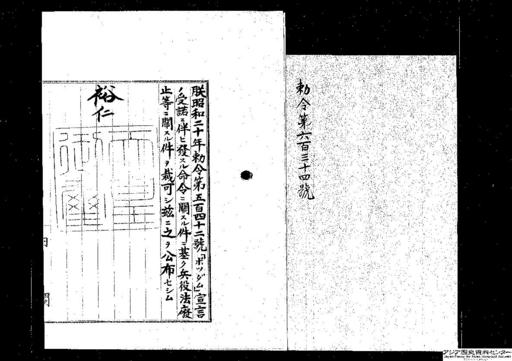 勅令第六百三十四號
朕昭和二十年勅令第五百四十二號「ポツダム」宣言
ノ受諾ニ伴ヒ發スル命令ニ關スル件ニ基ク兵役法廢
止等ニ關スル件ヲ裁可シ玆ニ之ヲ公布セシム
裕仁
アジア歴史資料センター